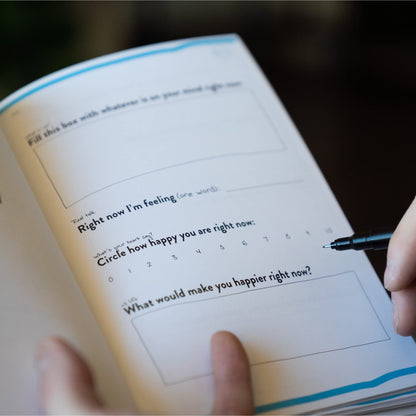 what's up?
Fill this box with whatever is on your mind right now:
Real talk
Right now I'm feeling (one word):
what's your heart say?
Circle how happy you are right now:
0 1 2 3 4 5 6 7 8 9 10
What would make you happier right now?